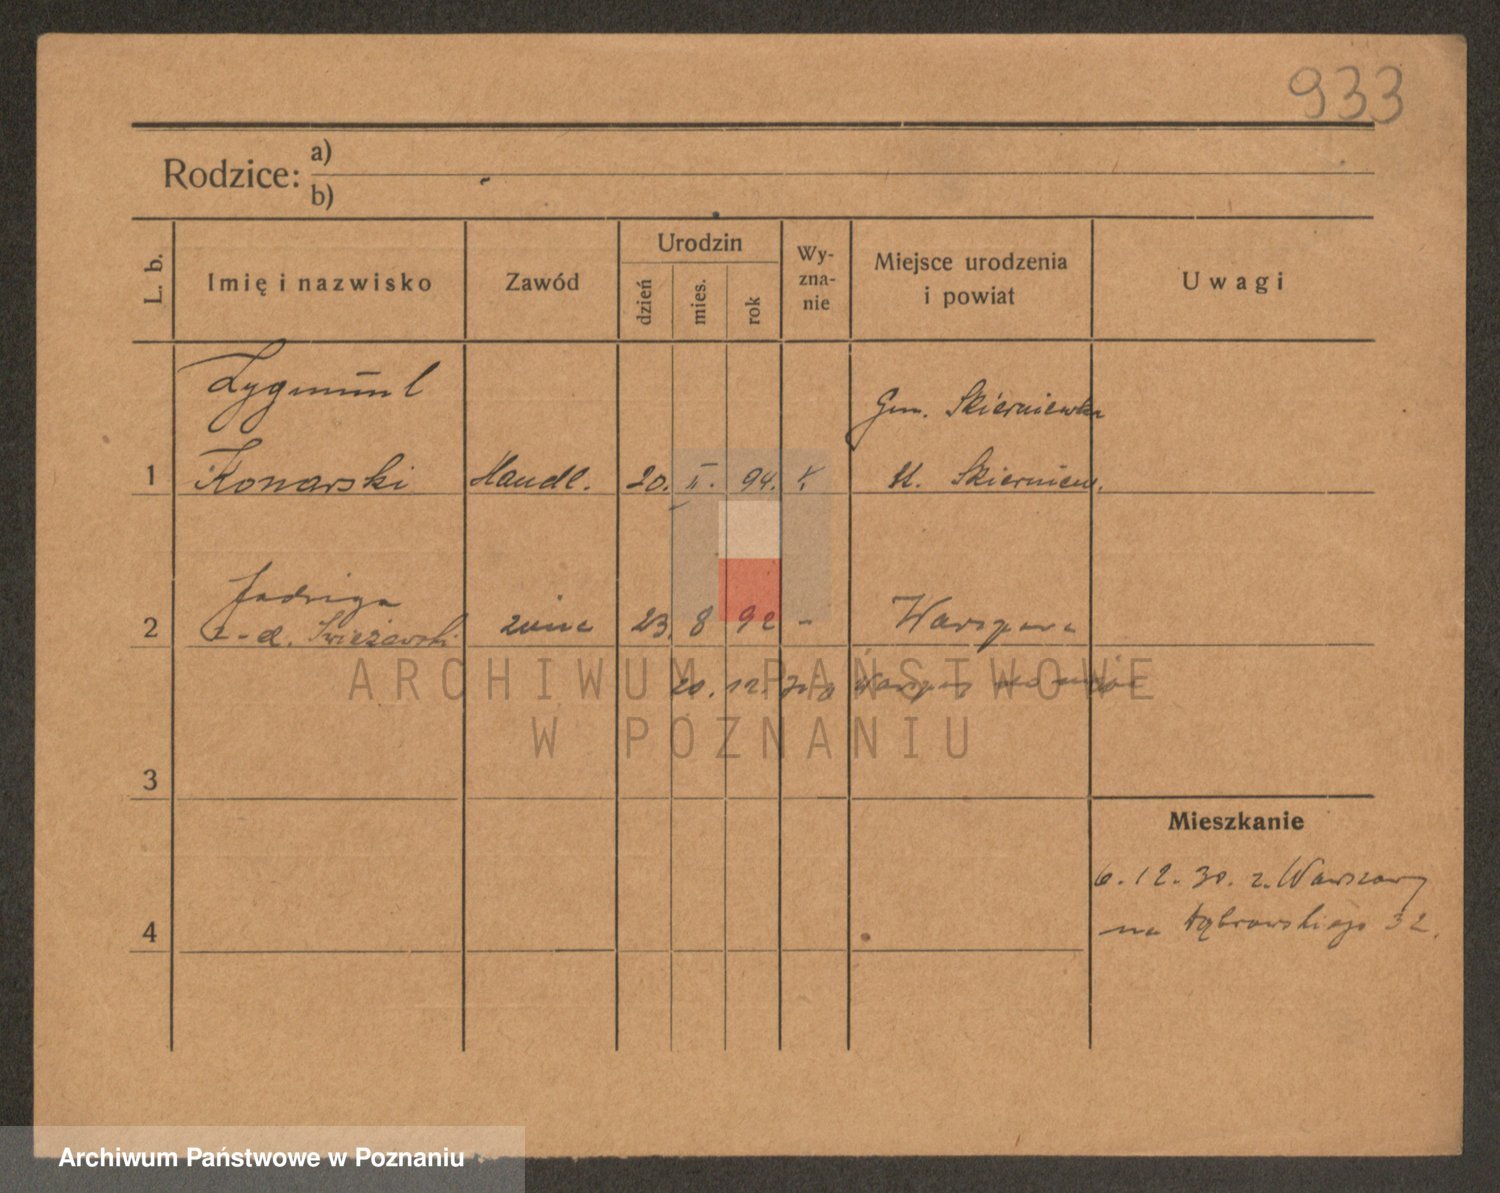 933
Rodzice: a)
b)
L. b.
Imię i nazwisko
Zawód
Urodzin
dzień
mies.
rok
Wy-
zna-
nie
Miejsce urodzenia
i powiat
Uwagi
Zygmunt
Gm. Skierniewka
1 Konarski Handl. 20. II. 94. K. Skierniew.
Jadwiga
2 z-d. Świeżawski żona 23. 8 92 - Warszawa
20. 12.
ARCHIWUM PAŃSTWOWE
W POZNANIU
3
Mieszkanie
6. 12. 30. z. Warszawy
na Dąbrowskiego 32.
4
Archiwum Państwowe w Poznaniu